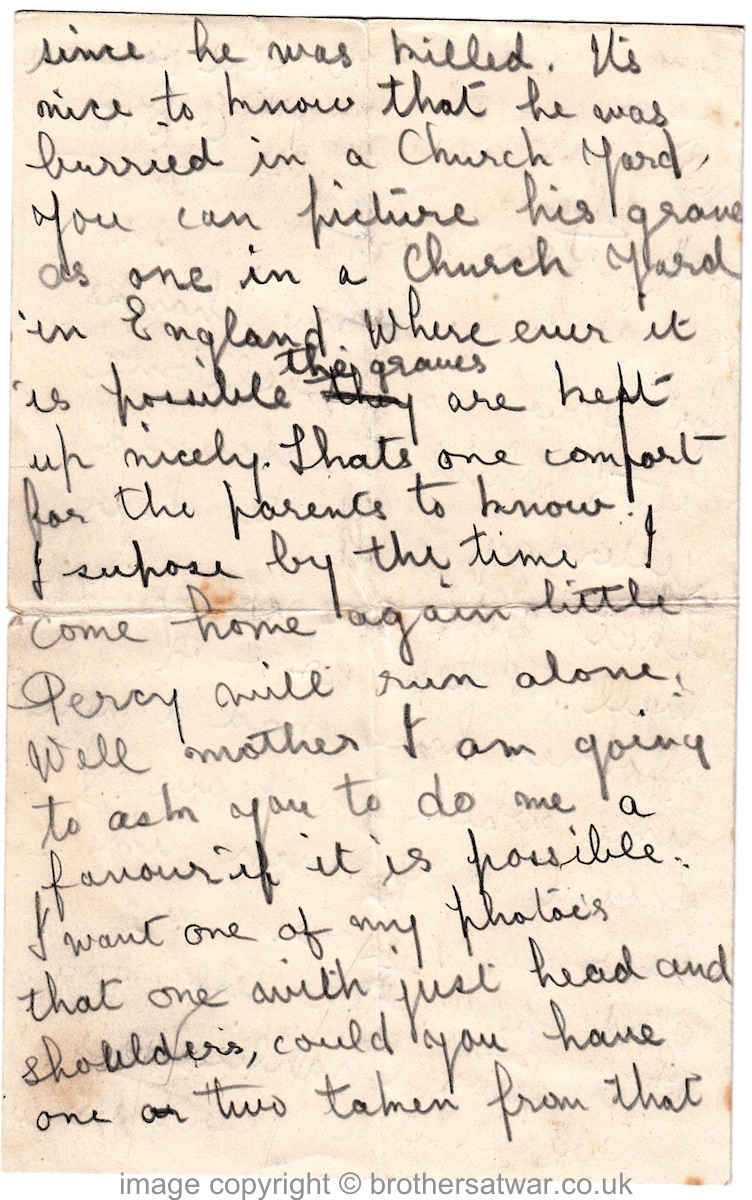 since he was killed. Its
nice to know that he was
burried in a Church Yard,
you can picture his grave
as one in a Church Yard
in England. Where ever it
is possible they the graves are kept
up nicely. Thats one comfort
for the parents to know.
I supose by the time I
come home again little
Percy will run alone.
Well mother I am going
to ask you to do me a
favour if it is possible.
I want one of my photoe's
that one with just head and
shoulders, could you have
one or two taken from that
image copyright © brothersatwar.co.uk